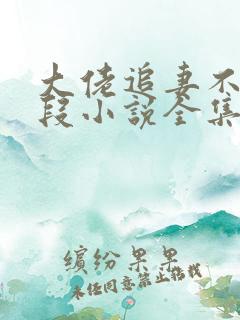 大佬追妻不
段小说全集
缤纷果果
未经同意禁止转载